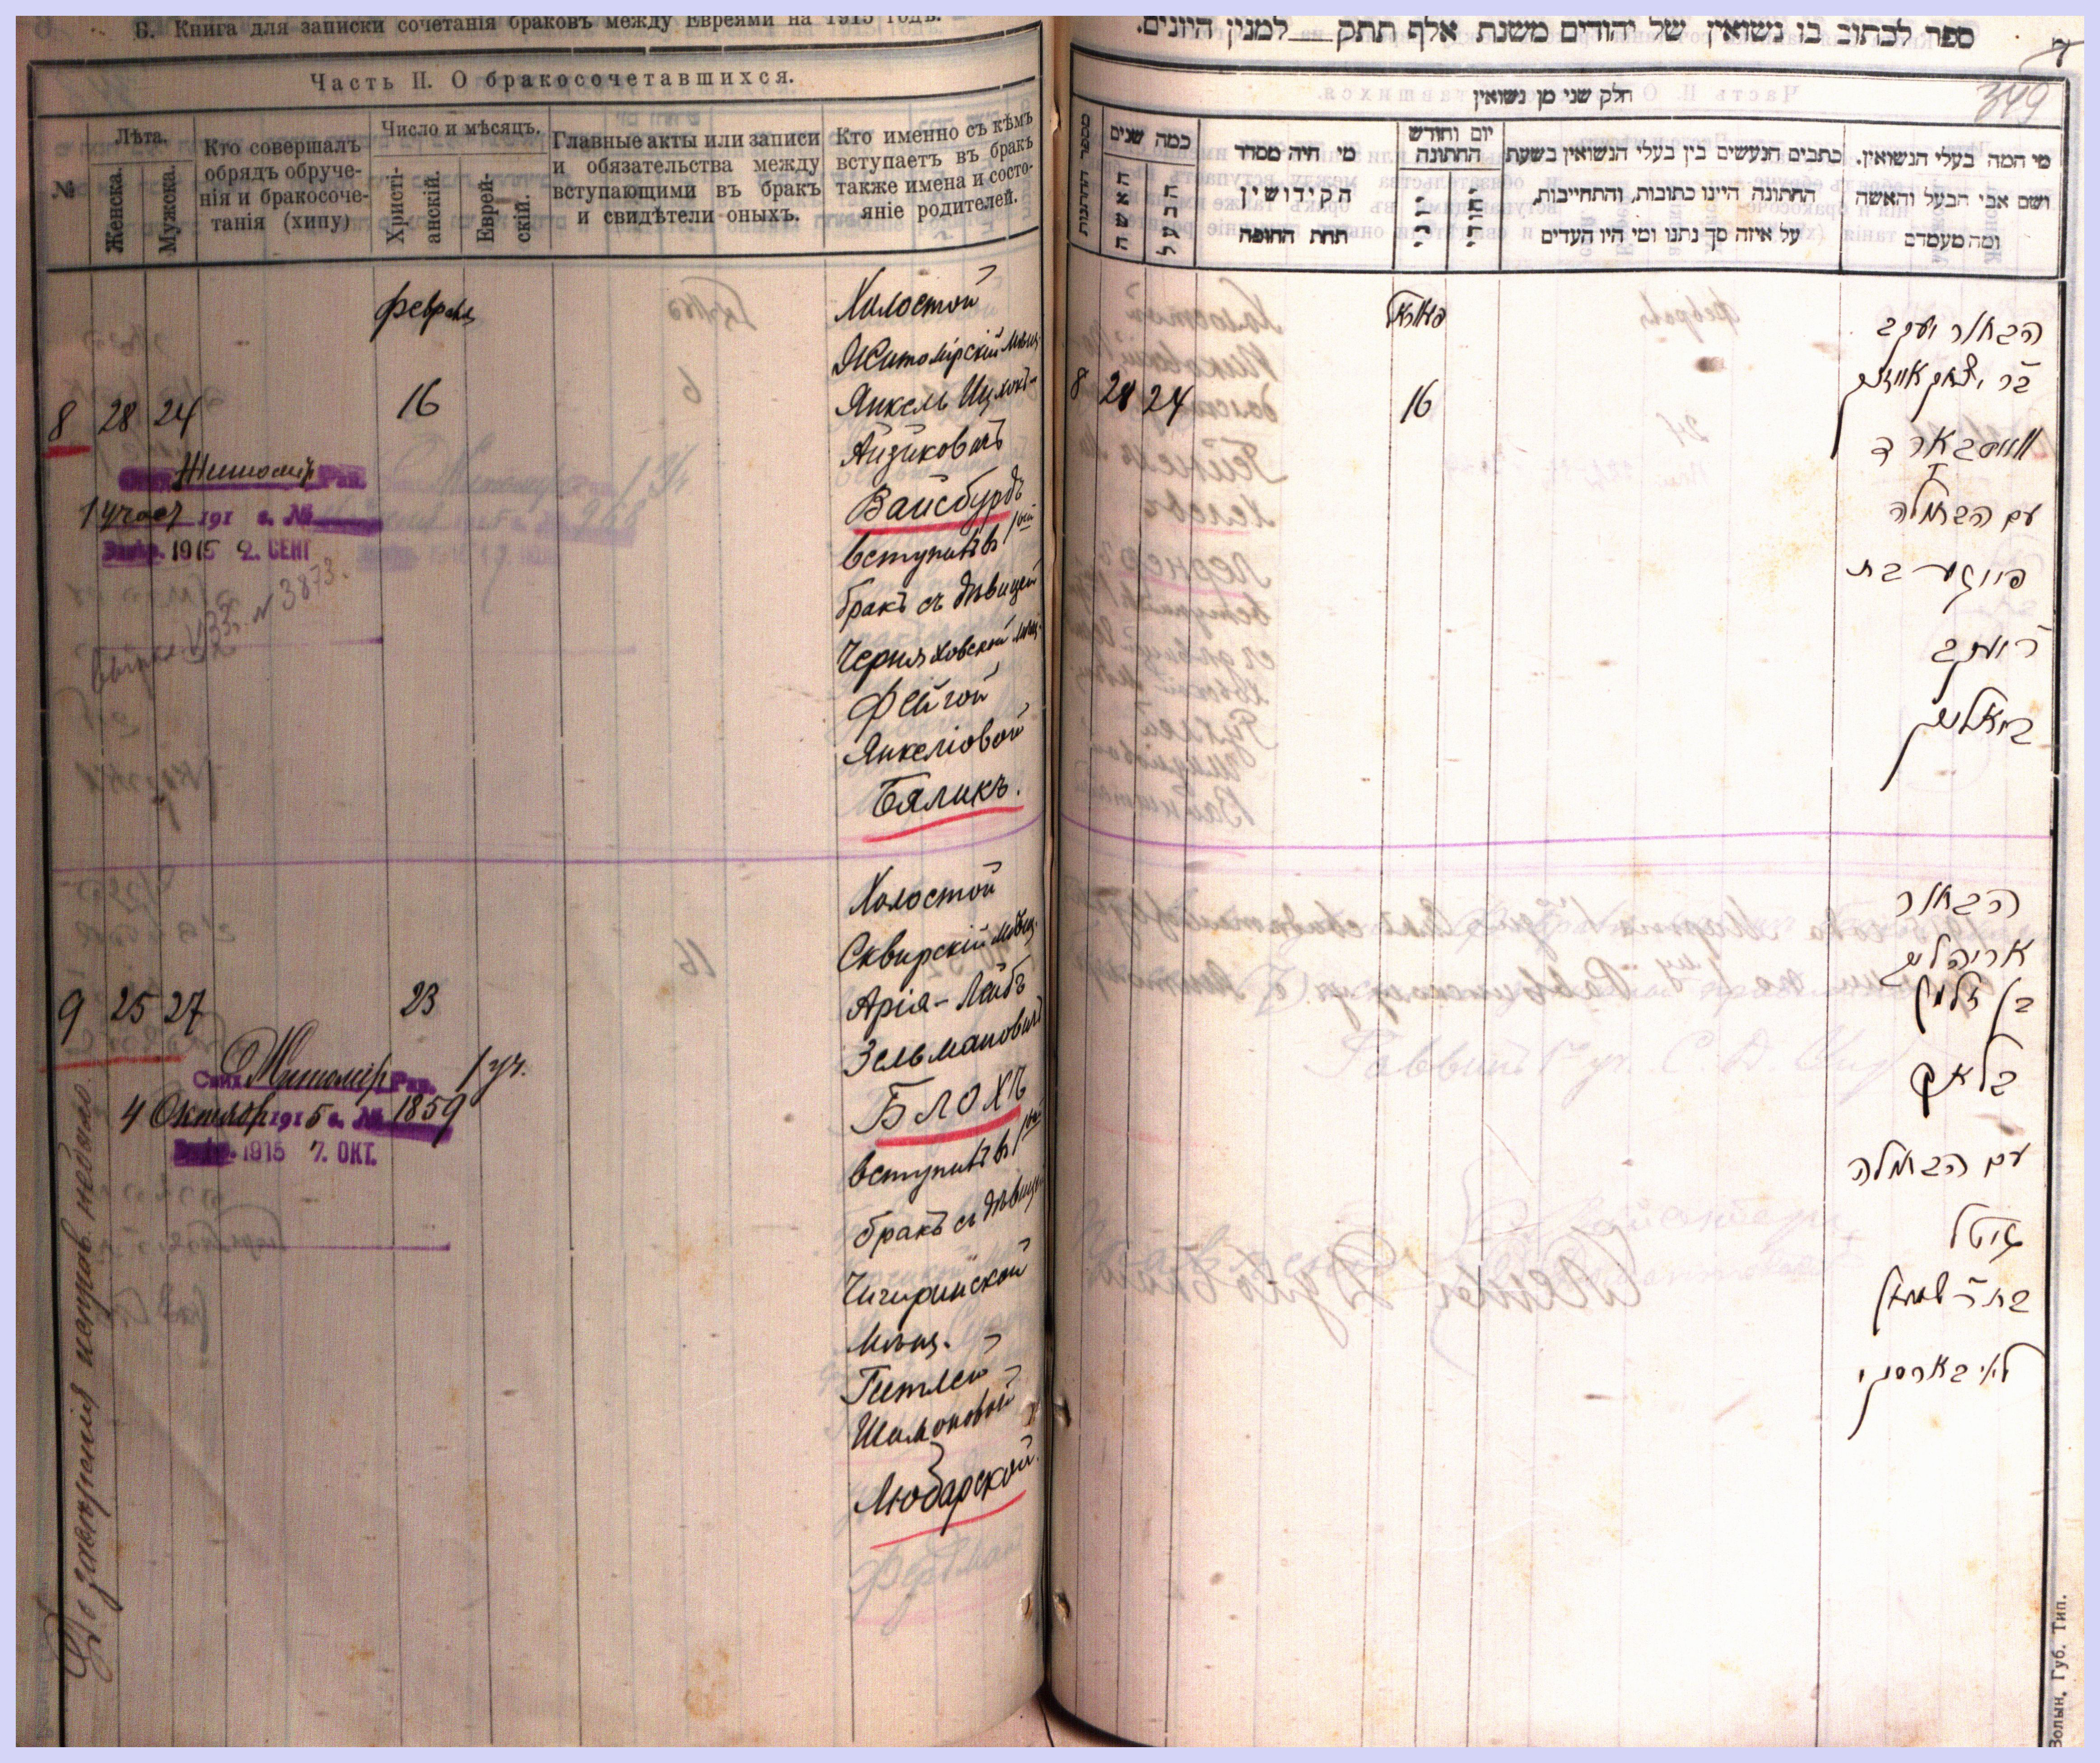 Б. Книга для записки сочетанія браковъ между Евреями на 1915 годъ.
Часть II. О бракосочетавшихся.
№
Лѣта.
Женска.
Мужска.
Кто совершалъ
обрядъ обруче-
нія и бракосоче-
танія (хипу)
Число и мѣсяцъ.
Христі-
анскій.
Еврей-
скій.
Главные акты или записи
и обязательства между
вступающими въ бракъ
и свидѣтели оныхъ.
Кто именно съ кѣмъ
вступаетъ въ бракъ
также имена и состо-
яніе родителей.
февраль
8 28 24
16
Житомір Рав.
1 участ 191 г. №
1915 2. СЕНТ
№ 3873.
Холостой
Житомірскій мѣщ.
Янкель Ицхокъ-
Айзиковичъ
Вайсбурдъ
вступилъ въ 1ый
бракъ съ дѣвицей
Черняховской мѣщ.
Фейгой
Янкеліовой
Бяликъ.
9 25 27
23
Житомір Рав. 1 уч.
4 Октября 1915 г. № 1859
1915 7. ОКТ.
Холостой
Сквирскій мѣщ.
Арія-Лейбъ
Зельмановичъ
Блохъ
вступилъ въ 1ый
бракъ съ дѣвиц.
Чигиринской
мѣщ.
Гитлей
Шимоновой
Любарской.
ספר לכתוב בו נשואין של יהודים משנת אלף תתק___למנין היונים.
349
חלק שני מן נשואין
מספר החתנות
כמה שנים
האשה
הבעל
מי היה מסדר
הקידושין
תחת החופה
יום וחודש
החתונה
כתבים הנעשים בין בעלי הנשואין בשעת
החתונה היינו כתובות, והתחייבות,
על איזה סך נתנו ומי היו העדים
מי המה בעלי הנשואין.
ושם אבי הבעל והאשה
ומה מעמדם
8 28 24
16
הבחור יעקב
בר יצחק אייזיק
ווייסבארד
עם הבתולה
פייגע בת
ר יעקב
ביאליק
הבחור
אריה ליב
בן זלמן
בלאך
עם הבתולה
גיטל
בת ר שמעון
ליובארסקי
Волын. Губ. Тип.